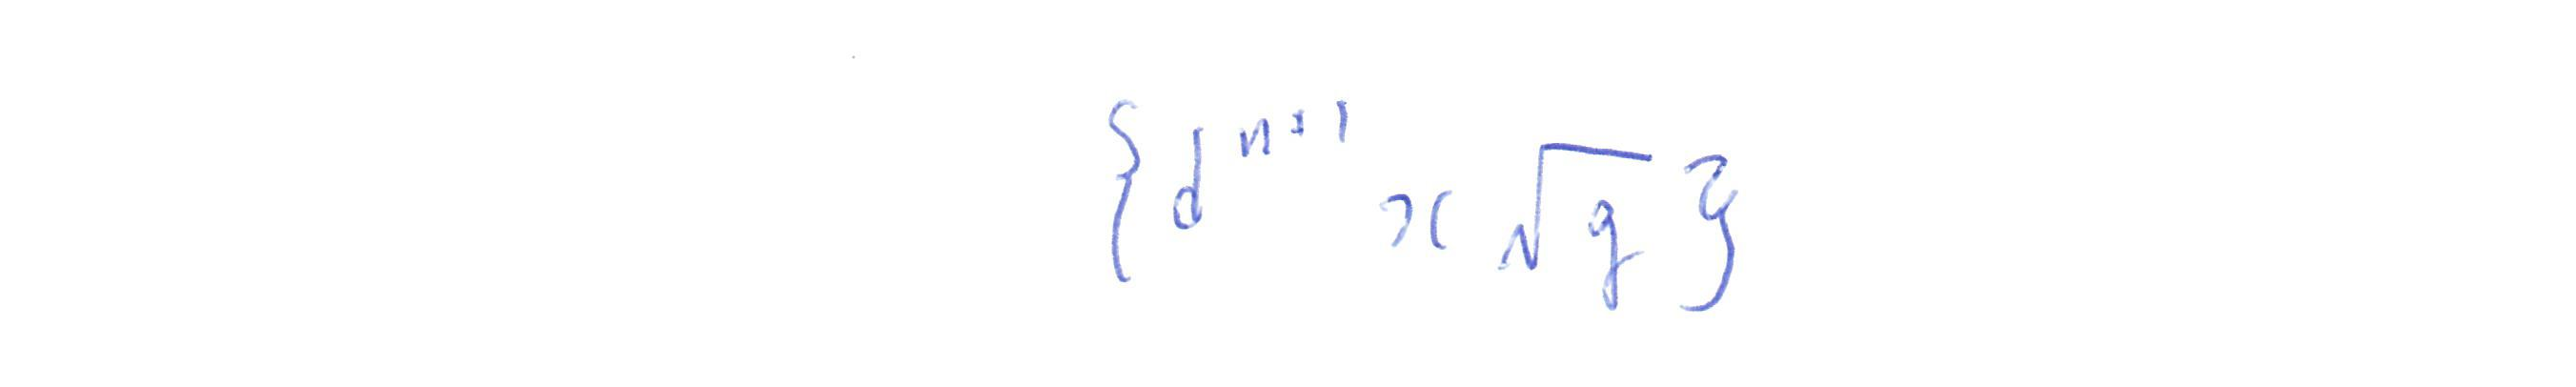 {d^{n+1} x √g}